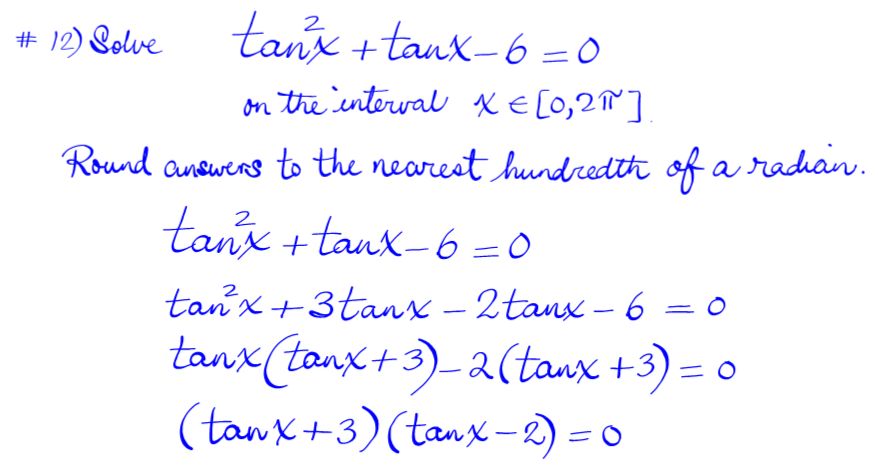 # 12) Solve tan²x + tanx - 6 = 0
on the interval x ∈ [0, 2π].
Round answers to the nearest hundredth of a radian.
tan²x + tanx - 6 = 0
tan²x + 3tanx - 2tanx - 6 = 0
tanx(tanx + 3) - 2(tanx + 3) = 0
(tanx + 3)(tanx - 2) = 0